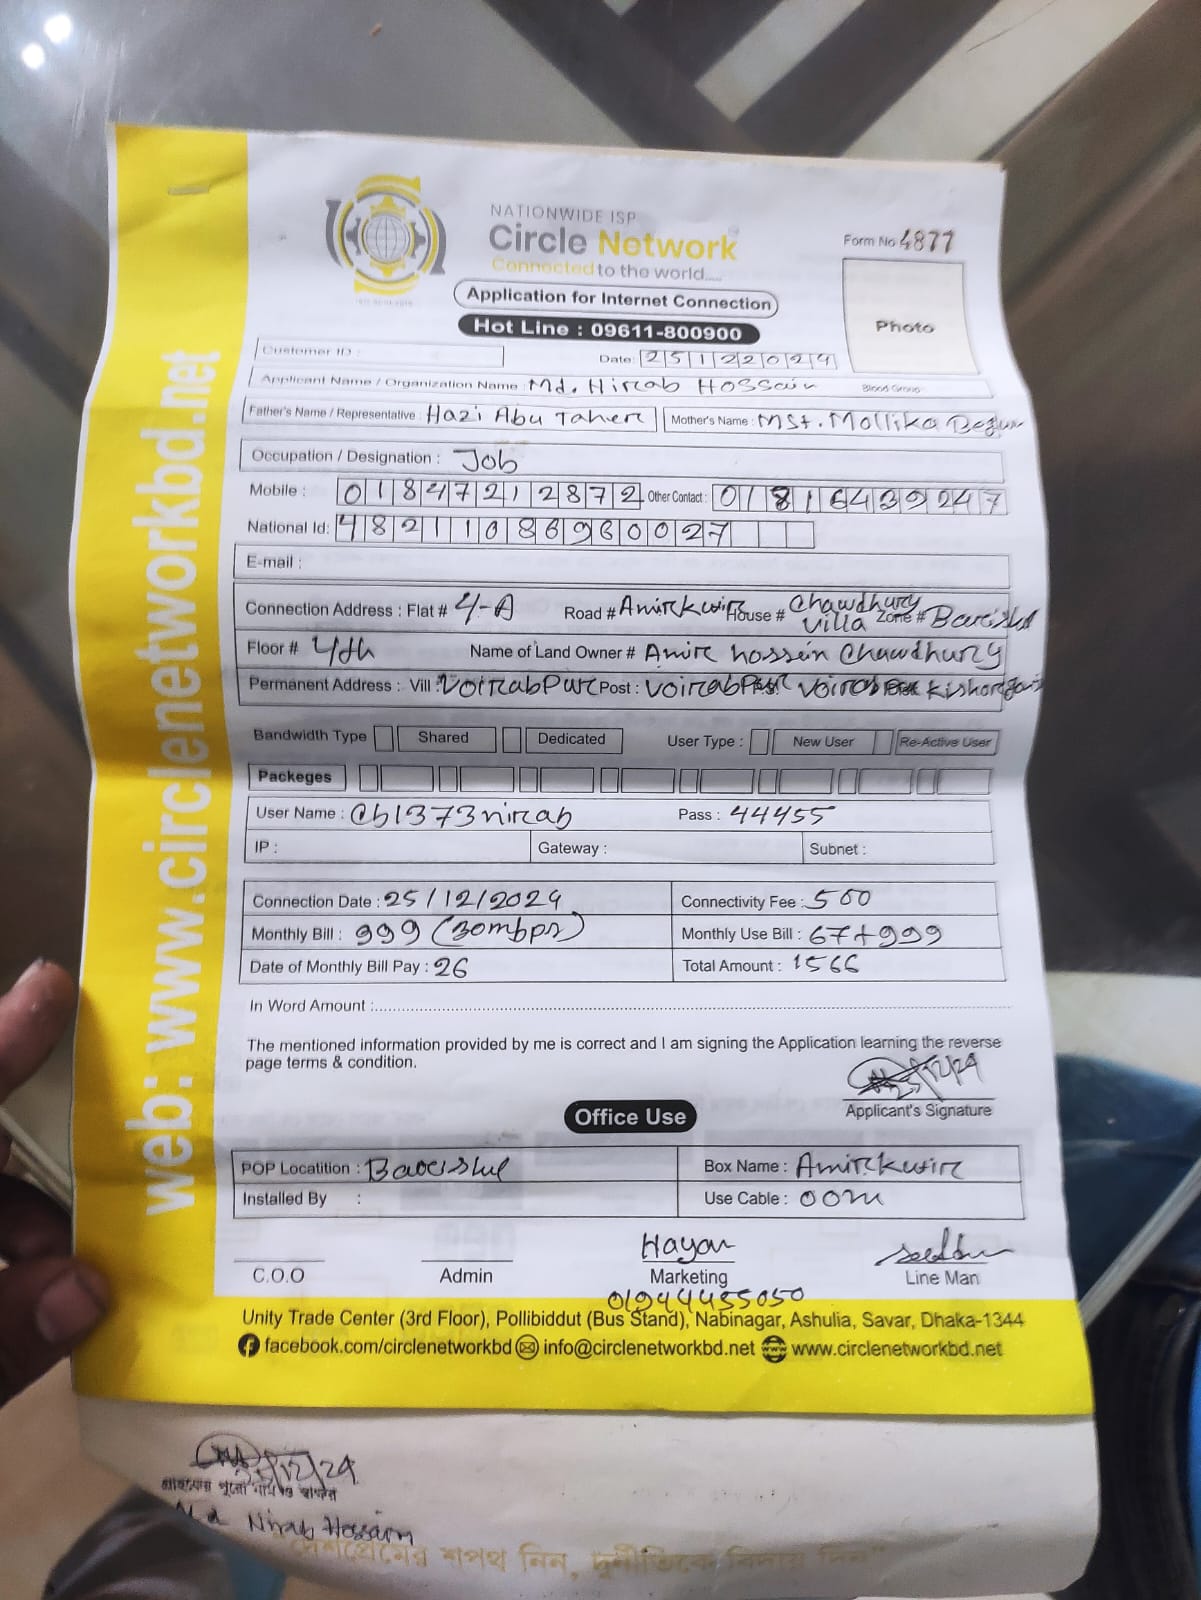 NATIONWIDE ISP
Circle Network
Connected to the world.....
Form No 4877
Application for Internet Connection
Hot Line : 09611-800900
Photo
Customer ID :
Date: 25122024
Applicant Name / Organization Name : Md. Nirab Hossain Blood Group:
Father's Name / Representative : Hazi Abu Taher Mother's Name : Mst. Mollika Begum
Occupation / Designation : Job
Mobile : 01847212872 Other Contact : 01816439247
National Id: 48211086960027
E-mail :
Connection Address : Flat # 4-A Road # Amirkuir House # Chawdhury Villa Zone #
Floor # 4th Name of Land Owner # Amir hossein Chawdhury
Permanent Address : Vill : VoirabPur Post : VoirabPur
Bandwidth Type Shared Dedicated User Type : New User Re-Active User
Packeges
User Name : Cb1373nirab Pass : 44455
IP : Gateway : Subnet :
Connection Date : 25/12/2024 Connectivity Fee : 500
Monthly Bill : 999 (30mbps) Monthly Use Bill : 67+999
Date of Monthly Bill Pay : 26 Total Amount : 1566
In Word Amount :
The mentioned information provided by me is correct and I am signing the Application learning the reverse
page terms & condition.
25/12/24
Applicant's Signature
Office Use
POP Locatition : Box Name : Amirkuir
Installed By : Use Cable : 00m
Hayan
C.O.O Admin Marketing Line Man
01944455050
Unity Trade Center (3rd Floor), Pollibiddut (Bus Stand), Nabinagar, Ashulia, Savar, Dhaka-1344
facebook.com/circlenetworkbd info@circlenetworkbd.net www.circlenetworkbd.net
web: www.circlenetworkbd.net
25/12/24
গ্রাহকের পুরো নাম ও স্বাক্ষর
Md Nirab Hossain
"দেশপ্রেমের শপথ নিন, দুর্নীতিকে বিদায় দিন"